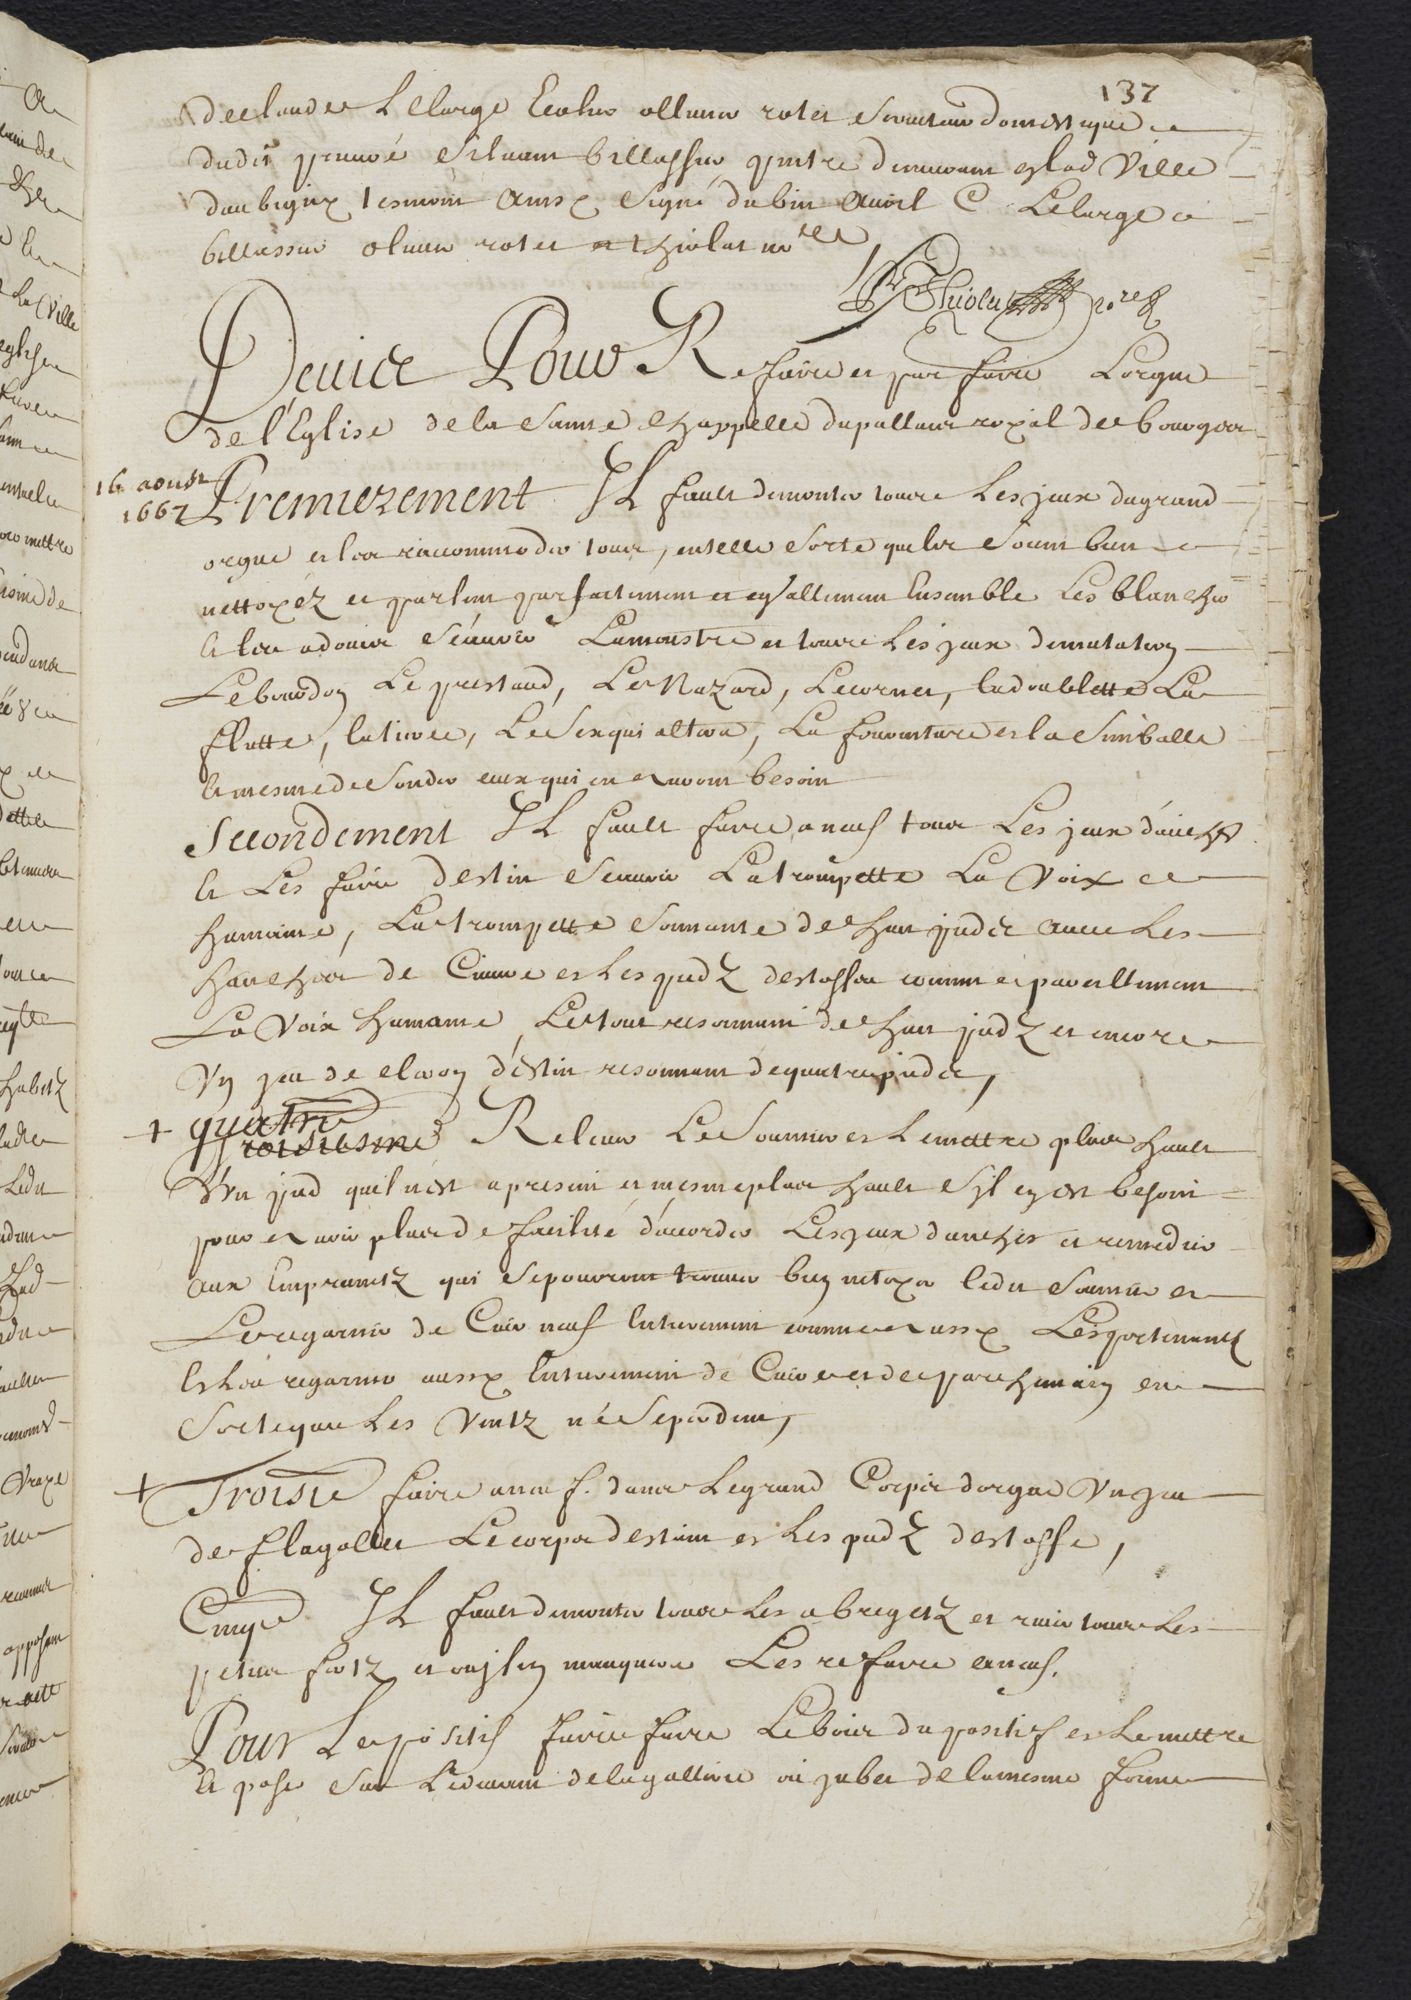 137
de Claude Lelarge Escolier ollivier rotet serviteur domestique
dudit prieuré Silvain billassier peintre demeurant en lad ville
daubigny tesmoins aussy signé dubin avril C Lelarge
billassier olivier rotet et Thiolat no<sup>re</sup>
Thiolat no<sup>re</sup> R
Devict Pour Refaire et parfaire Lorgue
de l'Eglise de la Sainte Chappelle du pallais royal de bourges
16 aoust
1667
Premierement Il fault demonter tous les jeux du grand
orgue et les raccommoder tous, en telle sorte quils soient bien
nettoyéz et parlent parfaitement et esgallement Ensemble Les blanchir
et les adoucir scavoir La monstre et tous les jeux de mutation
Le bourdon Le prestand, Le Nazard, Le cornet, la doublette La
flutte, la tierce, Le sexquialtera, La fourniture et la simballe
et mesme de souder ceux qui en auront besoin
Secondement Il fault faire a neuf tous Les jeux d'anches
et Les faire destin scavoir La trompette La voix
humaine, La trompette sonnante de huit piedz avec les
hanches de Cuivre et les piedz destoffes comme et pareillement
La voix humaine, Le tout resonnant de huit piedz et encore
un jeu de clairon d'estin resonnant de quatre piedz,
+ quatre
troisiesme Relever Le sommier et le mettre plus hault
d'un pied quil n'est a present et mesme plus hault syl en est besoin
pour avoir plus de facilité d'accorder Les jeux danches et remedier
aux Empruntz qui se pouront trouver bien netoyer ledit sommier et
Le regarnir de Cuir neuf Entierement comme aussy Les portevents
et les regarnir aussy Entierement de Cuir et de parchemin en
sorte que les ventz ne se perdent,
+ Troisie faire a neuf dans le grand Corps dorgue un jeu
de flagollet Le corps destain et les piedz destoffe,
Cinqe Il fault demonter tous les abregetz et revoir tous les
petits fertz et ou il en manquera Les refaire a neuf.
Pour Le positif faire faire Le bois du positif et le mettre
et poser sur Le devant de la gallerie ou jubé de la mesme forme